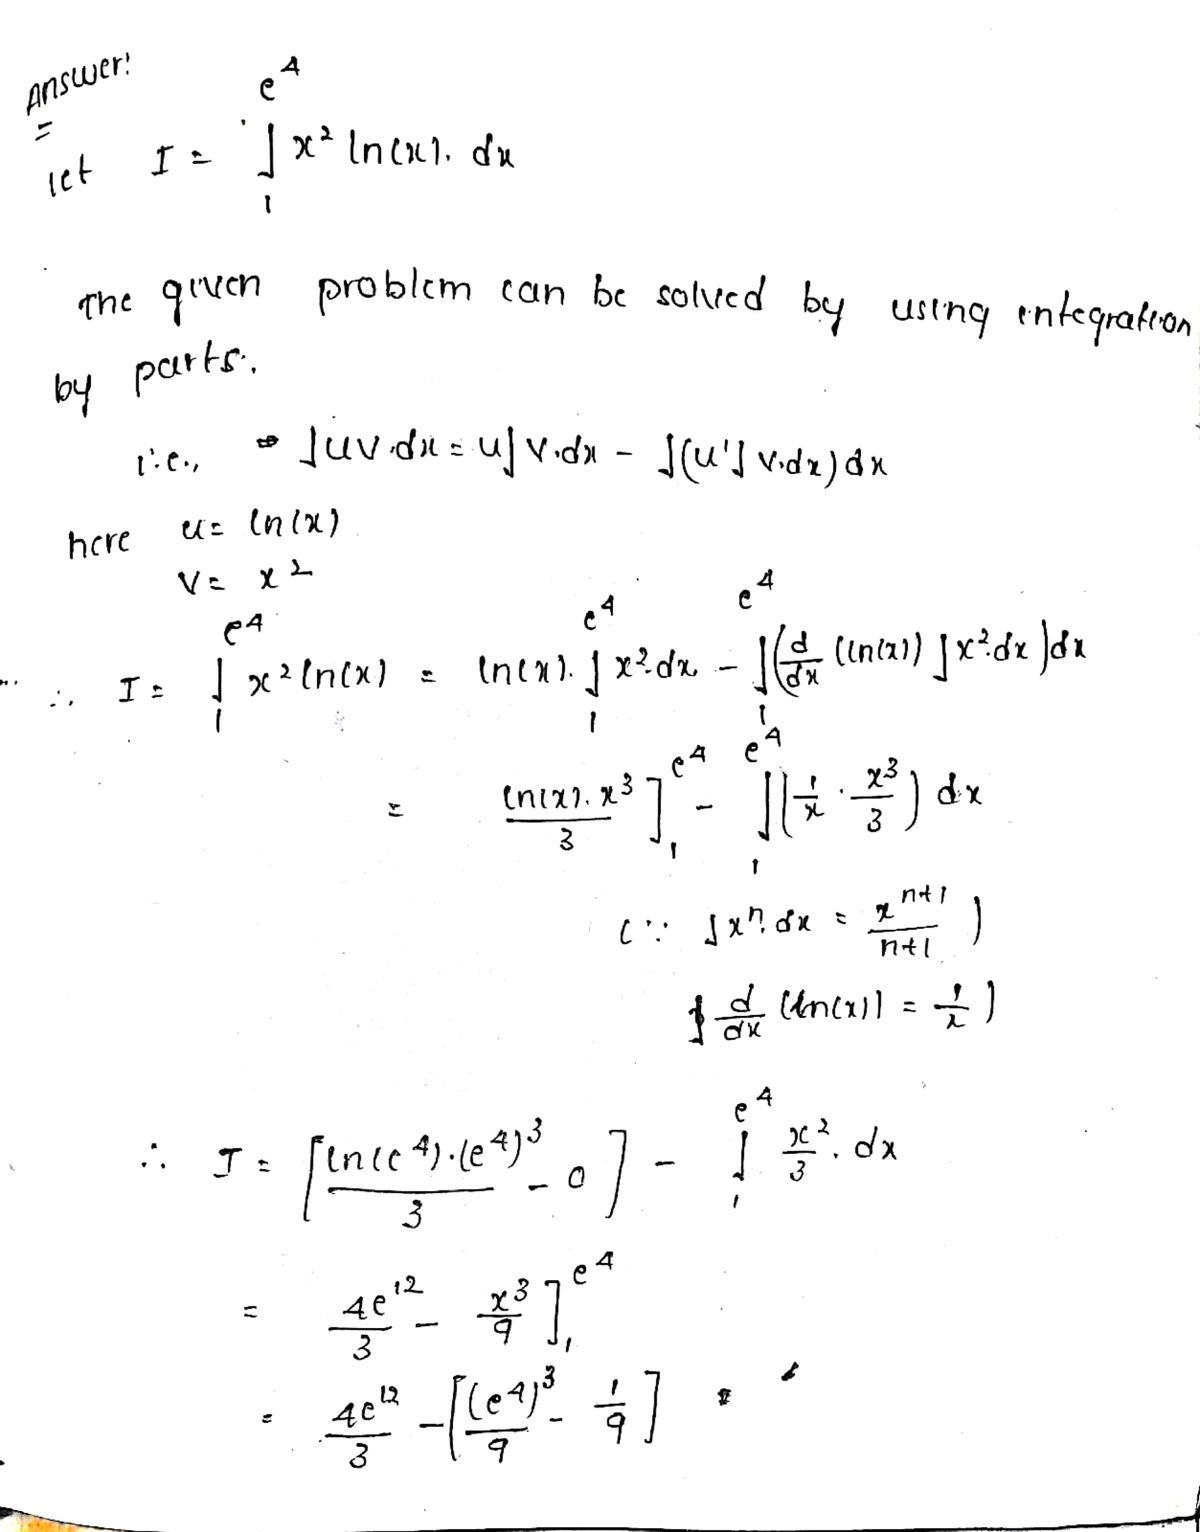 Answer:
let I = ∫₁^{e^4} x² ln(x). dx
The given problem can be solved by using integration
by parts.
i.e., ⇒ ∫uv.dx = u∫v.dx - ∫(u'∫v.dx)dx
here u = ln(x)
v = x²
∴ I = ∫₁^{e^4} x² ln(x) = ln(x). ∫₁^{e^4} x².dx - ∫₁^{e^4} (d/dx (ln(x)) ∫x².dx)dx
= ln(x). x³/3 ]₁^{e^4} - ∫₁^{e^4} (1/x · x³/3) dx
(∵ ∫xⁿ. dx = x^{n+1}/n+1 )
& d/dx (ln(x)) = 1/x )
∴ I = [ln(e^4).(e^4)³/3 - 0] - ∫₁^{e^4} x²/3 . dx
= 4e^{12}/3 - x³/9 ]₁^{e^4}
= 4e^{12}/3 - [(e^4)³/9 - 1/9]